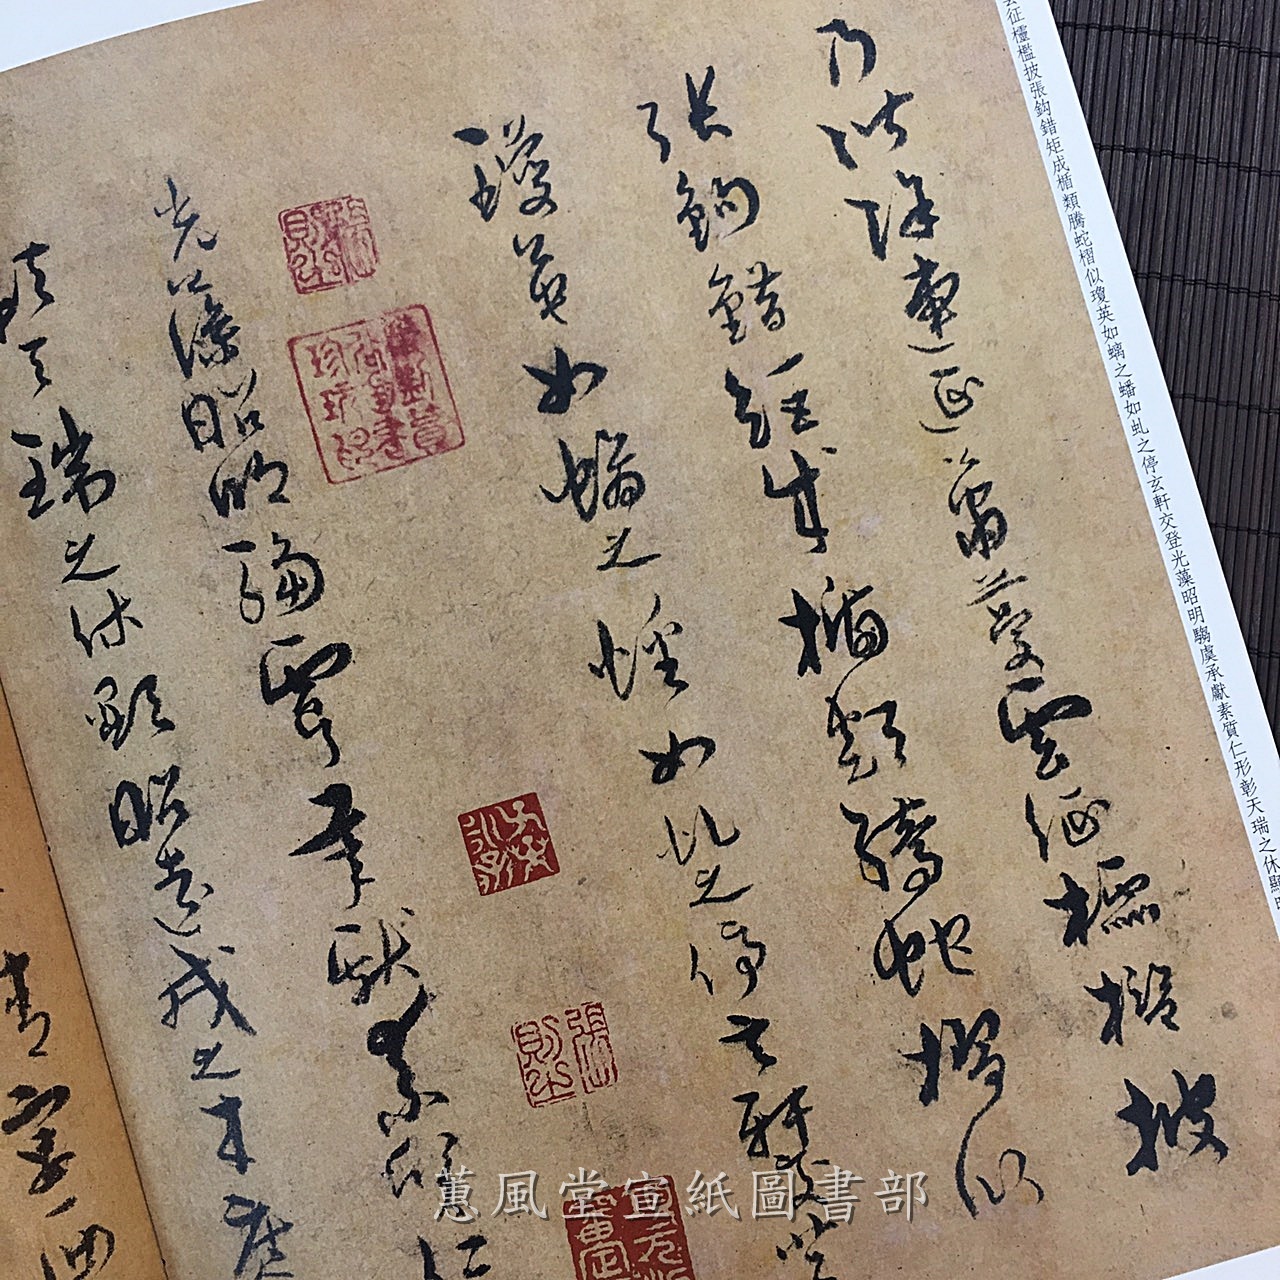 征櫺檻披張鈎錯矩成楯類騰蛇槢似瓊英如螭之蟠如虬之停玄軒交登光藻昭明騶虞承獻素質仁形彰天瑞之休顯
乃階除連延蕭曼雲征櫺檻披
張鈎錯矩成楯類騰蛇槢似
瓊英如螭之蟠如虬之停玄軒交登
光藻昭明騶虞承獻素質仁
彰天瑞之休顯照遠戎之來庭
張則之
張則之
蕙風堂宣紙圖書部